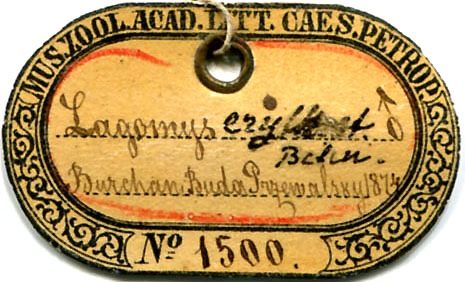 MUS. ZOOL. ACAD. LITT. CAES. PETROP.
Lagomys ♂
Burchan Buda Przewalsky 1874
Nº 1500.